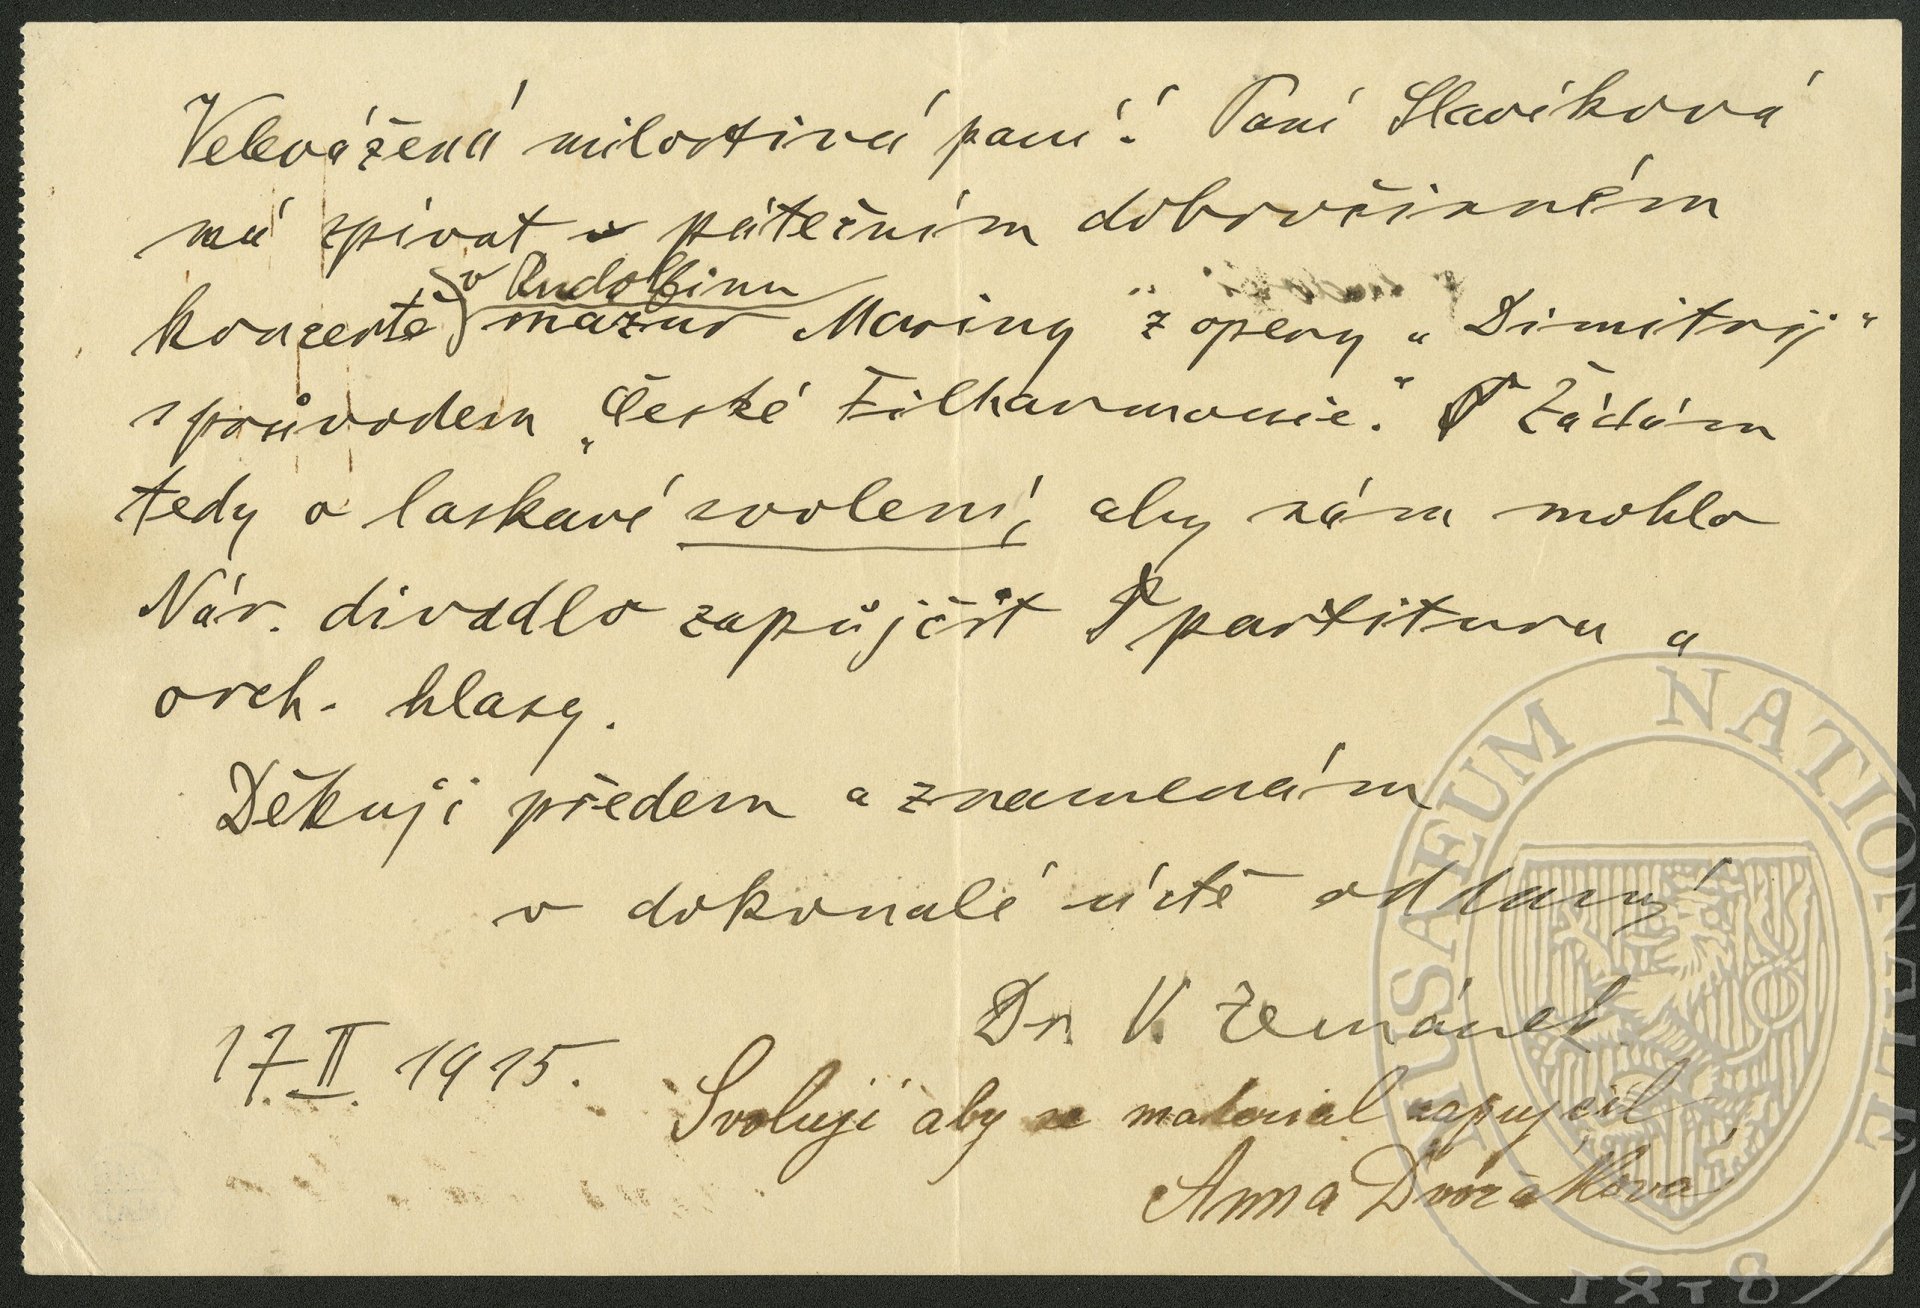 Velevážená milostivá paní! Paní Slavíková
má zpívat v pátečním dobročinném
koncertě v Rudolfinu
mazur Mariny z opery „Dimitrij“
s průvodem „České Filharmonie“. Žádám
tedy o laskavé svolení, aby nám mohlo
Nár. divadlo zapůjčit partituru a
orch. hlasy.
Děkuji předem a znamenám
v dokonalé úctě oddaný
Dr. V. Zemánek
17. II. 1915.
Svoluji aby se material zapujčil
Anna Dvořáková
MUSAEUM NATIONALE
1818